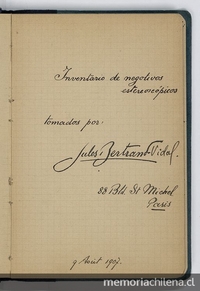 Inventario de negativos
estereoscópicos
tomados por:
Jules Bertrand Vidal.
88 Bld St Michel
Paris
9 Août 1907.
memoriachilena.cl